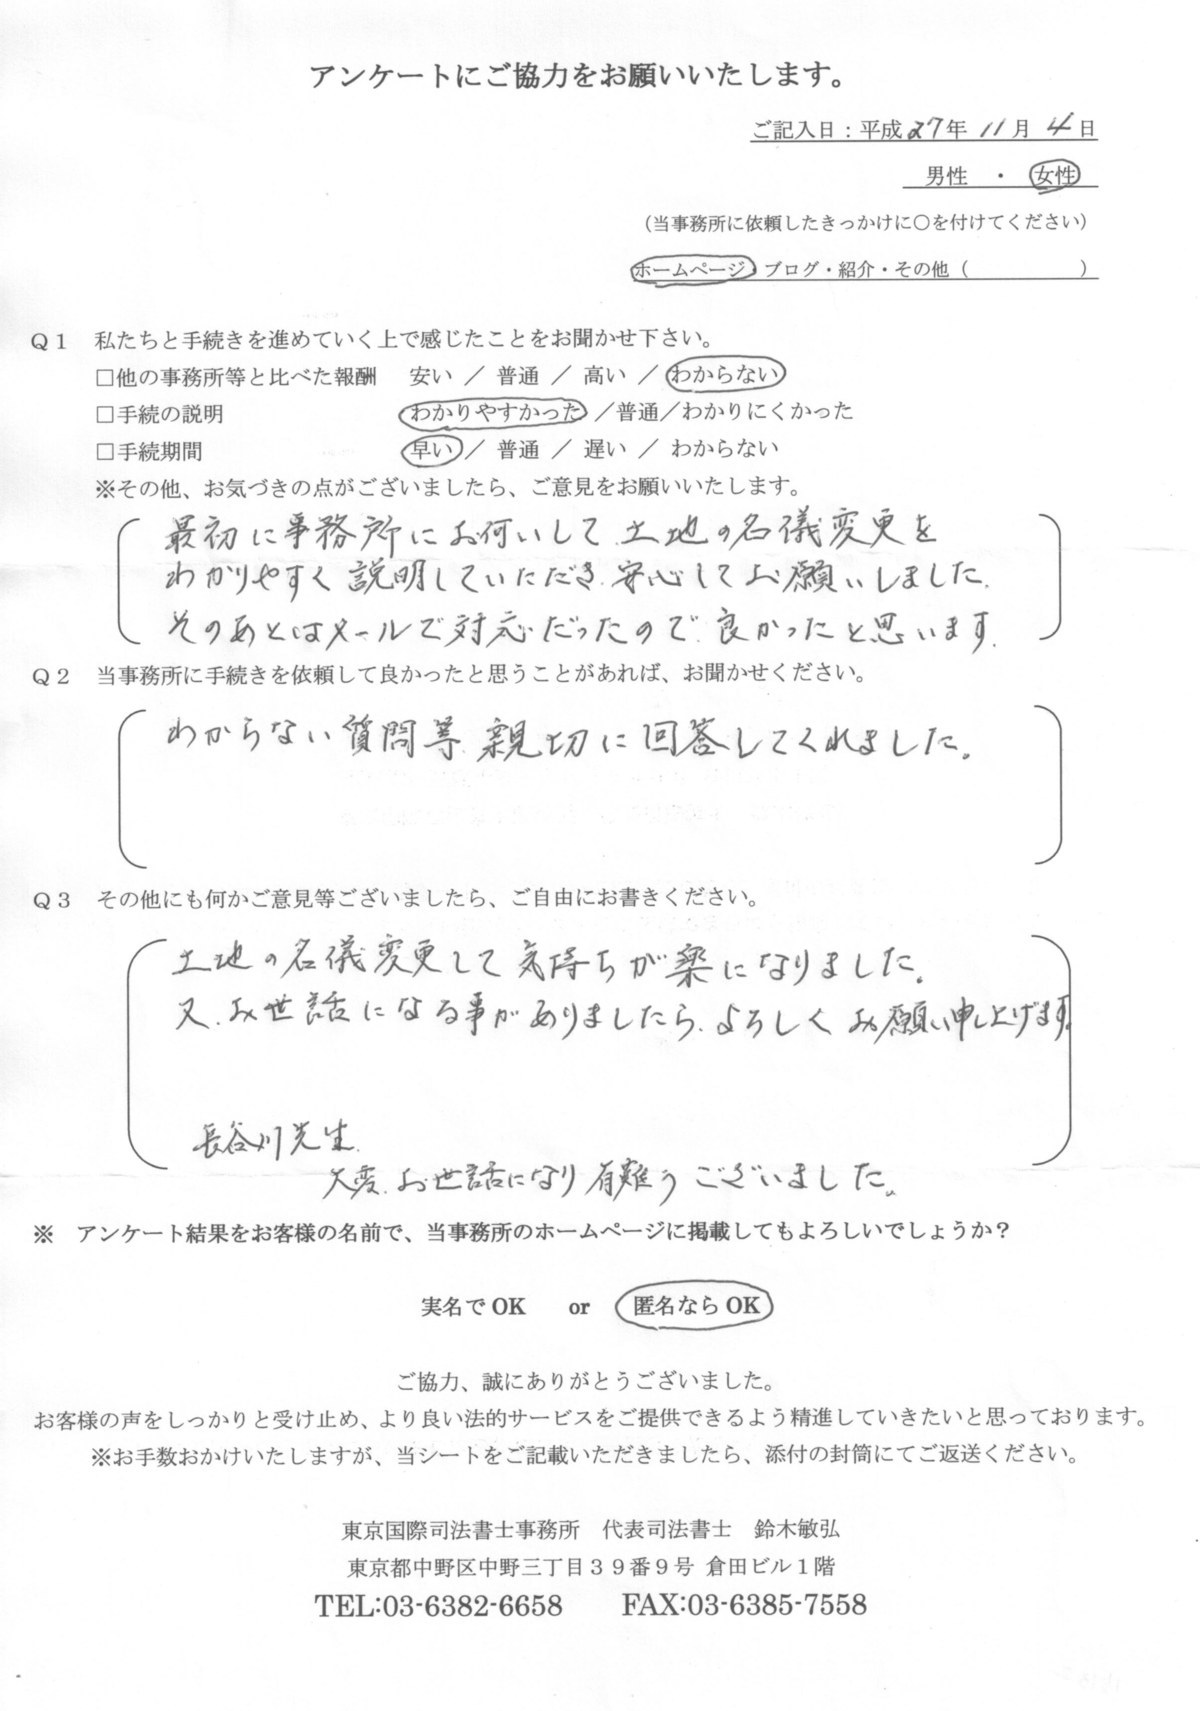 アンケートにご協力をお願いいたします。
ご記入日：平成27年11月4日
男性 ・ 女性
（当事務所に依頼したきっかけに○を付けてください）
ホームページ・ブログ・紹介・その他（ ）
Q１ 私たちと手続きを進めていく上で感じたことをお聞かせ下さい。
□他の事務所等と比べた報酬 安い ／ 普通 ／ 高い ／ わからない
□手続の説明 わかりやすかった ／普通／わかりにくかった
□手続期間 早い ／ 普通 ／ 遅い ／ わからない
※その他、お気づきの点がございましたら、ご意見をお願いいたします。
最初に事務所にお伺いして 土地の名儀変更を
わかりやすく説明していただき、安心してお願いしました。
そのあとはメールで対応だったので、良かったと思います。
Q２ 当事務所に手続きを依頼して良かったと思うことがあれば、お聞かせください。
わからない質問等、親切に回答してくれました。
Q３ その他にも何かご意見等ございましたら、ご自由にお書きください。
土地の名儀変更して気持ちが楽になりました。
又、お世話になる事がありましたら、よろしくお願い申し上げます。
長谷川先生、
大変、お世話になり有難うございました。
※ アンケート結果をお客様の名前で、当事務所のホームページに掲載してもよろしいでしょうか？
実名でOK or 匿名ならOK
ご協力、誠にありがとうございました。
お客様の声をしっかりと受け止め、より良い法的サービスをご提供できるよう精進していきたいと思っております。
※お手数おかけいたしますが、当シートをご記載いただきましたら、添付の封筒にてご返送ください。
東京国際司法書士事務所 代表司法書士 鈴木敏弘
東京都中野区中野三丁目３９番９号 倉田ビル１階
TEL:03-6382-6658 FAX:03-6385-7558